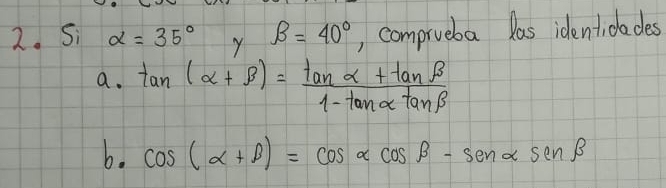 2. Si α = 35° y β = 40°, comprueba las identidades
a. tan (α + β) = tan α + tan β / 1 - tan α tan β
b. cos (α + β) = cos α cos β - sen α sen β